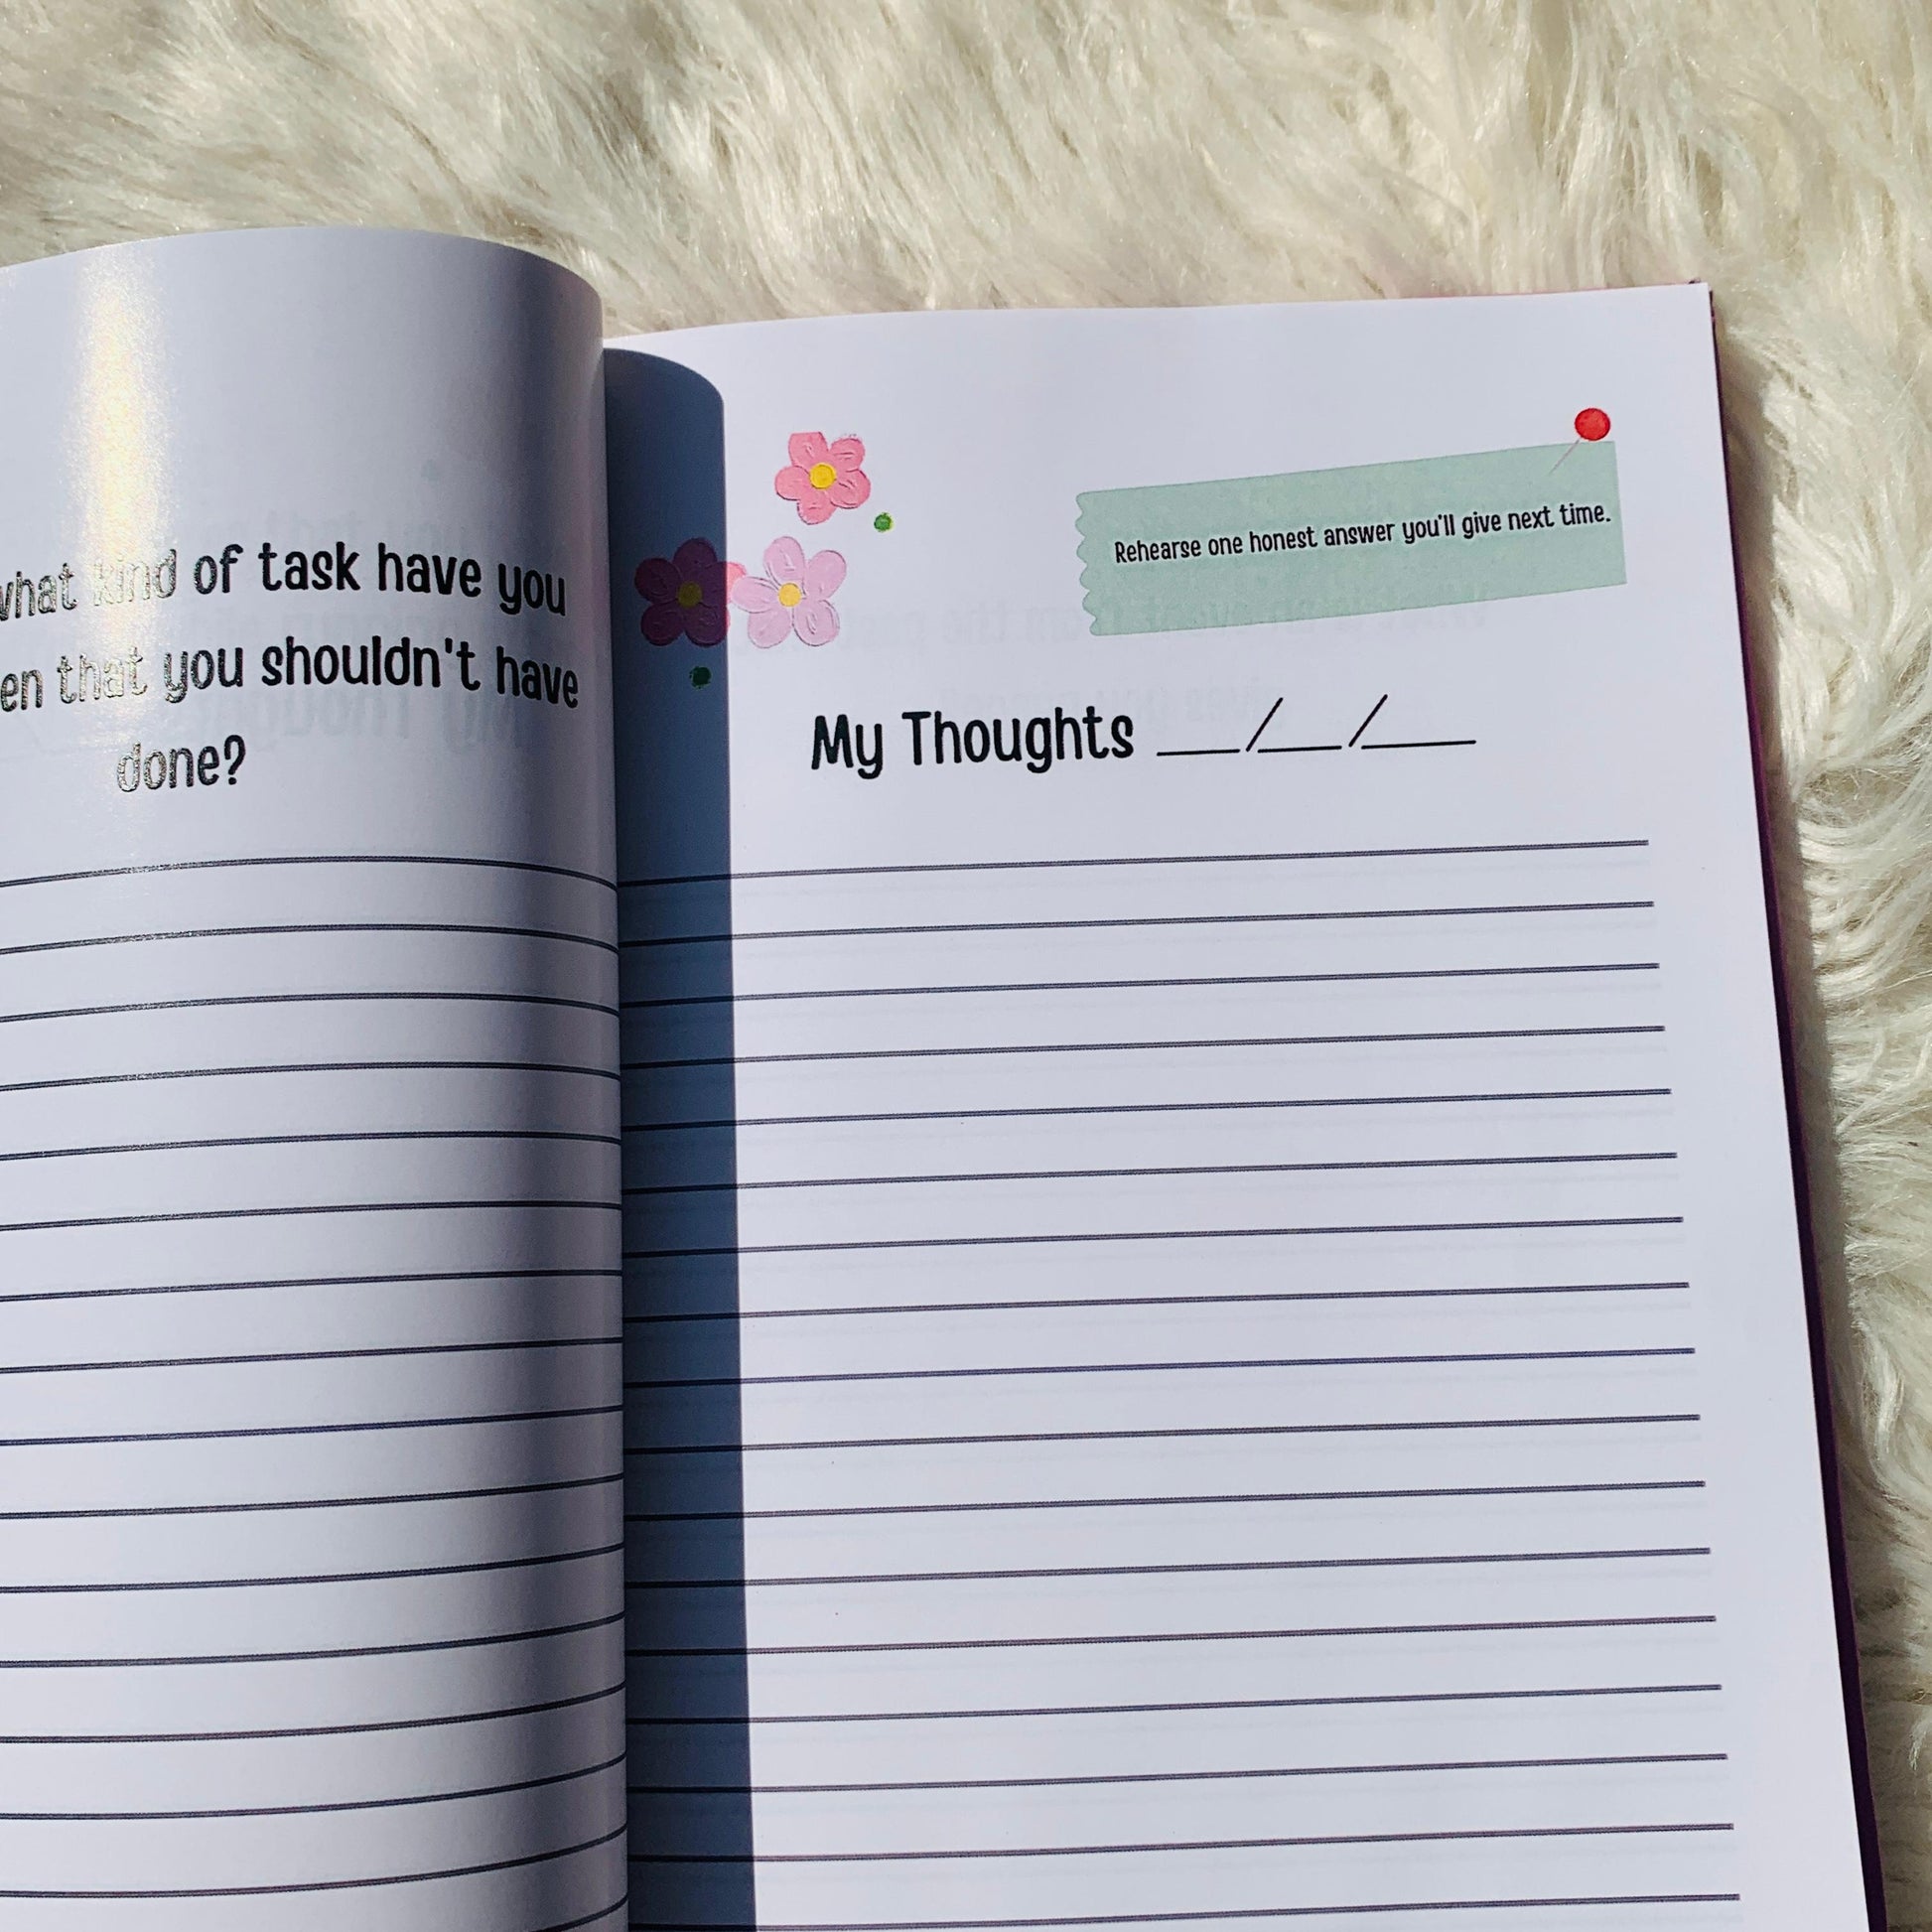 what kind of task have you
that you shouldn't have
done?
Rehearse one honest answer you'll give next time.
My Thoughts __/__/___